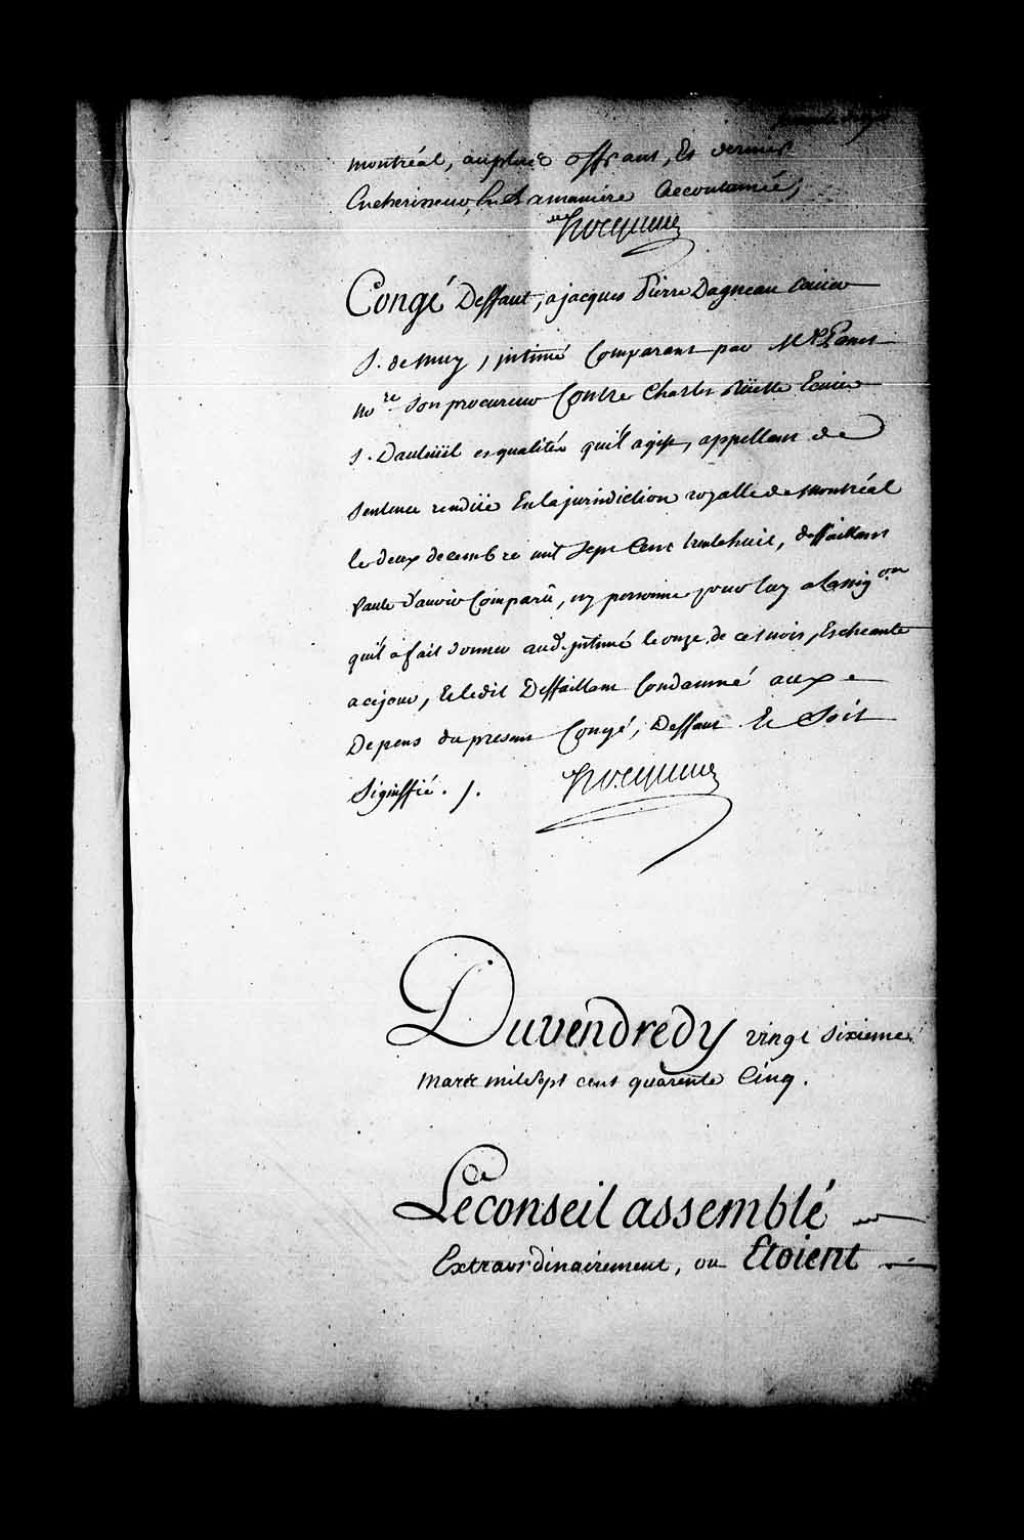 montréal, auplus offrant, Et dernier
Encherisseur, En la maniére accoutumée,
hocquart
Congé Deffaut, a jacques Pierre Dagneau Ecuier
S. de muy, intimé Comparant par Me Panet
nore. son procureur Contre Charles Rüette Ecuier
S. Dauteüil es qualités qu'il agist, appellant de
Sentence rendüe En la jurisdiction royalle de Montréal
le deux decembre mil Sept Cent trentehuit, deffaillant
faute d'avoir Comparû, ny personne pour luy a Lassigon
qu'il a fait donner aud. intimé le onze de ce mois, Escheante
a cejour, Et ledit Deffaillant Condamné aux
Depens du present Congé, Deffaut Et Soit
Signiffié ./.
hocquart
Du vendredy vingt sixieme
Mars mil Sept cent quarente Cinq.
Le Conseil assemblé
Extraordinairement, ou Etoient